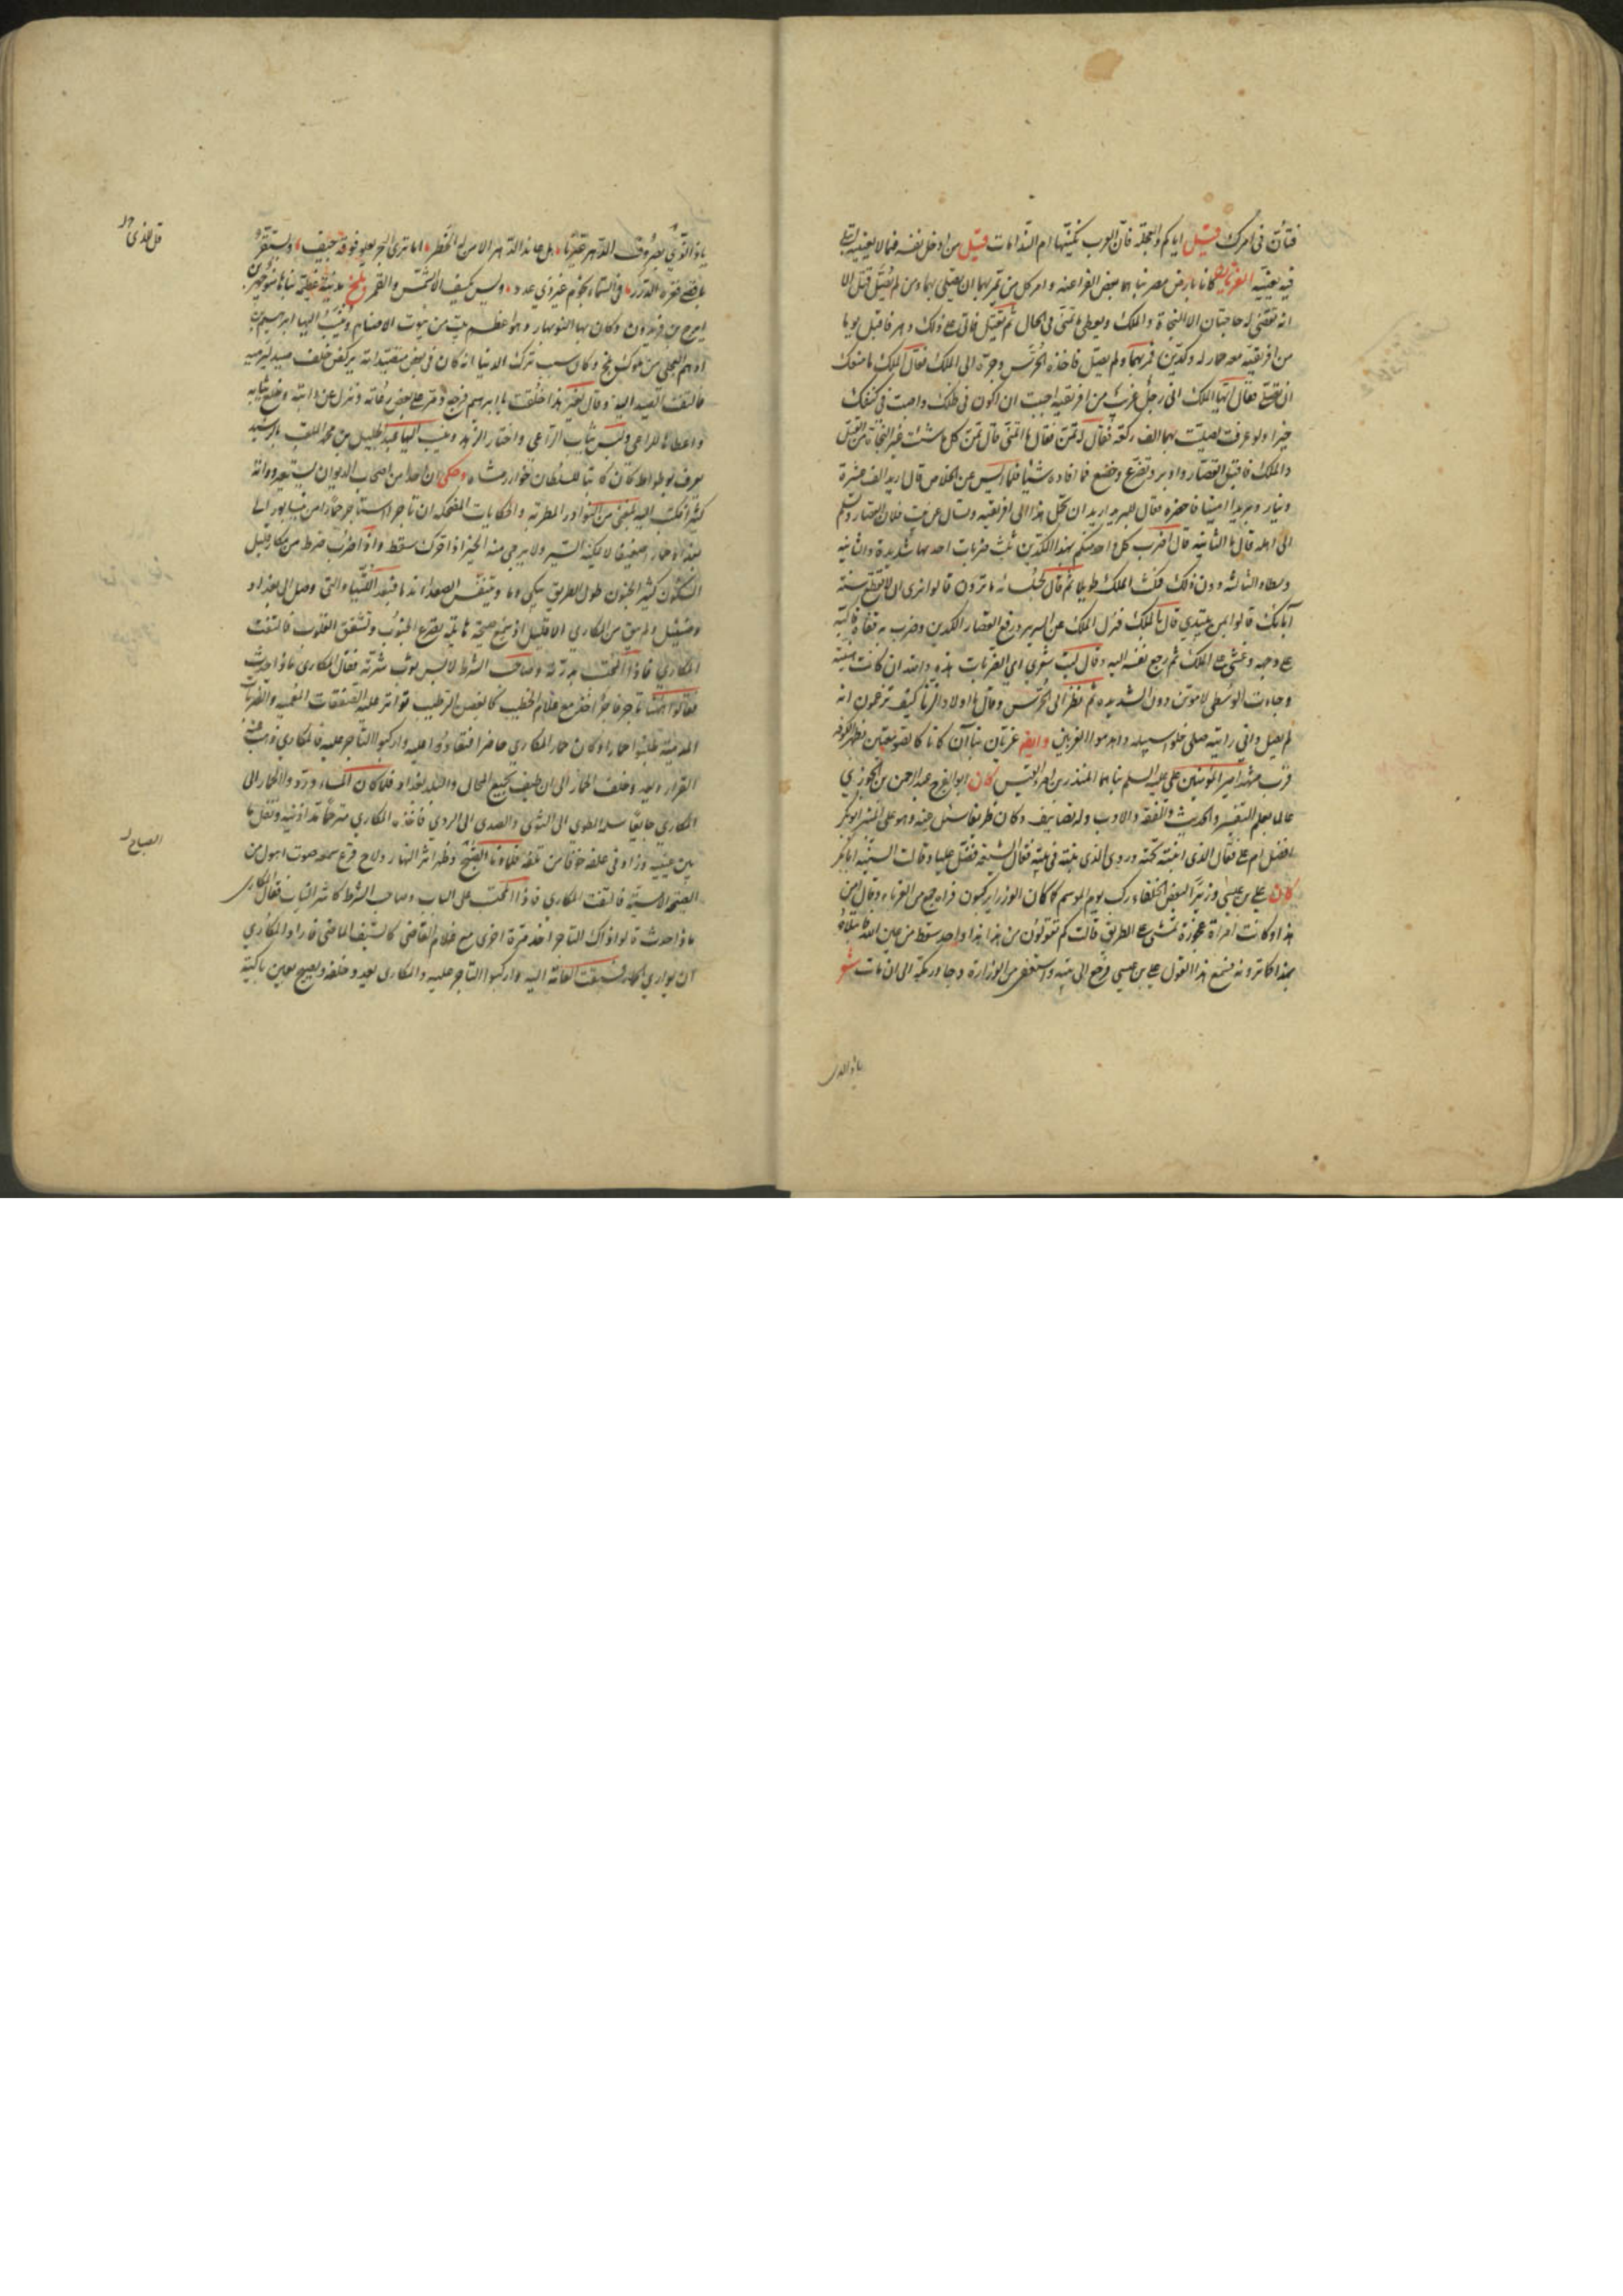 فتأن في امرك قيل اياكم والعجلة فان العرب تكنيها ام الندامات قيل من ادخل نفسه فيما لا يعنيه ابتلي
فيه بعنيه الغريان كانا بارض مصر بناهما بعض الفراعنة وامر كل من يمر بهما ان يصلي لهما ومن لم يصل قتل الا
انه تقضى له حاجتان الا النجاة والملك ويعطى ما تمنى في الحال ثم يقتل فاتى على ذلك دهر فاقبل يوما
من افريقية معه حمار له وكدين فمر بهما ولم يصل فاخذه الحرس وجره الى الملك فقال له الملك ما منعك
ان تصلي فقال ايها الملك اني رجل غريب من افريقية احببت ان اكون في ظلك واصيب في كنفك
خيرا ولو عرفت لصليت لهما الف ركعة فقال له تمن فقال ما اتمنى قال تمن كل ما شئت غير النجاة من القتل
والملك فاقبل القصار وادبر وتضرع وخضع فما افاده شيئا فلما ايس من الخلاص قال اريد الف عشرة
دينار وبريدا امينا فاحضره فقال للبريد اريد ان تحمل هذا الى افريقية وتسال عن بيت فلان القصار وتسلم
الى اهله قال ما الثانية قال اضرب كل واحد منكم بهذا الكدين ثلث ضربات احدها شديدة والثانية
وسطا والثالثة دون ذلك فمكث الملك طويلا ثم قال لجلسائه ما ترون قالوا نرى ان لا تقطع سنة
آبائك قالوا بمن تبتدي قال بالملك فنزل الملك عن السرير ورفع القصار الكدين وضرب به قفاه فاكبه
على وجهه وغشي على الملك ثم رجع نفسه اليه وقال ليت شعري اي الضربات هذه والله ان كانت هينة
وجاءت الوسطى لاموتن دون الشديدة ثم نظر الى الحرس وقال يا اولاد الزنا كيف تزعمون انه
لم يصل واني رايته صلى خلوا سبيله واهدموا الغريين وايضا غريان بناآن كانا كالصومعتين بظهر الكوفة
قرب مشهد امير المؤمنين علي عليه السلم بناهما المنذر بن امرء القيس كان ابو الفرج عبد الرحمن بن الجوزي
عالما بعلم التفسير والحديث والفقه والادب وله تصانيف وكان ظريفا سئل عنه وهو على المنبر ابو بكر
افضل ام علي فقال الذي ابنته تحته وروي الذي بنته في بيته فقال الشيعة فضل عليا وقالت السنية ابا بكر
كان علي بن عيسى وزيرا لبعض الخلفاء ركب يوم الموسم كما كان الوزراء يركبون فراه جمع من الغرباء وقال من
هذا وكانت امراة عجوزة تمشي على الطريق قالت كم تقولون من هذا هذا واحد سقط من عين الله فابتلاه
بهذا كما ترونه فسمع هذا القول علي بن عيسى فرجع الى بيته واستعفى من الوزارة وجاور بمكة الى ان مات شعر
ياذا الذي
ياذا الذي بصروف الدهر عيرنا هل عاند الدهر الا من له الخطر اما ترى البحر يعلو فوقه جيف ويستقر
باقصى قعره الدرر في السماء نجوم غير ذي عدد وليس يكسف الا الشمس والقمر بلخ مدينة عظيمة بناها منوچهر بن
ايرج بن فريدون وكان بها النوبهار وهو اعظم بيت من بيوت الاصنام وينسب اليها ابرهيم بن
ادهم العجلي من ملوك بلخ وكان سبب تركه الدنيا انه كان في بعض متصيداته يركض خلف صيد ليرميه
فالتفت الصيد اليه وقال لغير هذا خلقت يا ابرهيم فرجع ومر على بعض رعاته ونزل عن دابته وخلع ثيابه
واعطاها للراعي ولبس ثياب الراعي واختار الزهد وينسب اليها عبد الجليل بن محمد الملقب بالرشيد
يعرف بوطواط كان كاتبا للسلطان خوارزمشاه وحكى ان احدا من اصحاب الديوان
كثيرا فكتب اليه بلغني من النوادر المطربة والحكايات المضحكة ان تاجرا استاجر حمارا من نيسابور الى
بغداد حمار ضعيفا لا يمكنه السير ولا يرجى منه الخير اذا حرك سقط واذا اضرب ضرط من مكار قليل
السكون كثير الجنون طول الطريق يبكي دما ويتنفس الصعداء ندما فبعد اللتيا والتي وصل الى بغداد
وحمار ضئيل ولم يبق من المكاري الا قليل اذ سمع صيحة هائلة يصدع الجنوب وتشقق القلوب فالتفت
المكاري فاذا المحتسب بدرته وصاحب الشرط لابس ثوب شرته فقال المكاري ماذا حدث
فقالوا هنا تاجر فاجر اخذ مع غلام الخطيب كالغصن الرطيب تواتر عليه الصفقات المعمية والضربات
المدمية طلبوا حمارا وكان حمار المكاري حاضرا فتقاودوا عليه واركبوا التاجر عليه فالمكاري ذهب عنه
القرار ويعدو خلف الحمار الى ان طيف بجميع المحال والبلد بغداد فلما كان المساء وردوا الحمار الى
المكاري جايعا سلمه الطوى الى التوى والصدى الى الردى فاخذه المكاري مترحما قد اذنيه وقبل ما
بين عينيه وزاد في علفه خوفا من تلفه فلما دنا الصبح وظهر اثر النهار ولاح قرع سمعه صوت اهول من
الصيحة الامسية فالتفت المكاري فاذا المحتسب على الباب وصاحب الشرط كاشر الناب فقال المكاري
ماذا حدث قالوا ذاك التاجر اخذ مرة اخرى مع غلام القاضي كالسيف الماضي فاراد المكاري
ان يواري الحمار فسبقت العامة اليه واركبوا التاجر عليه والمكاري يعدو خلفه ويصيح بعين باكية
قل للذي
الصباح